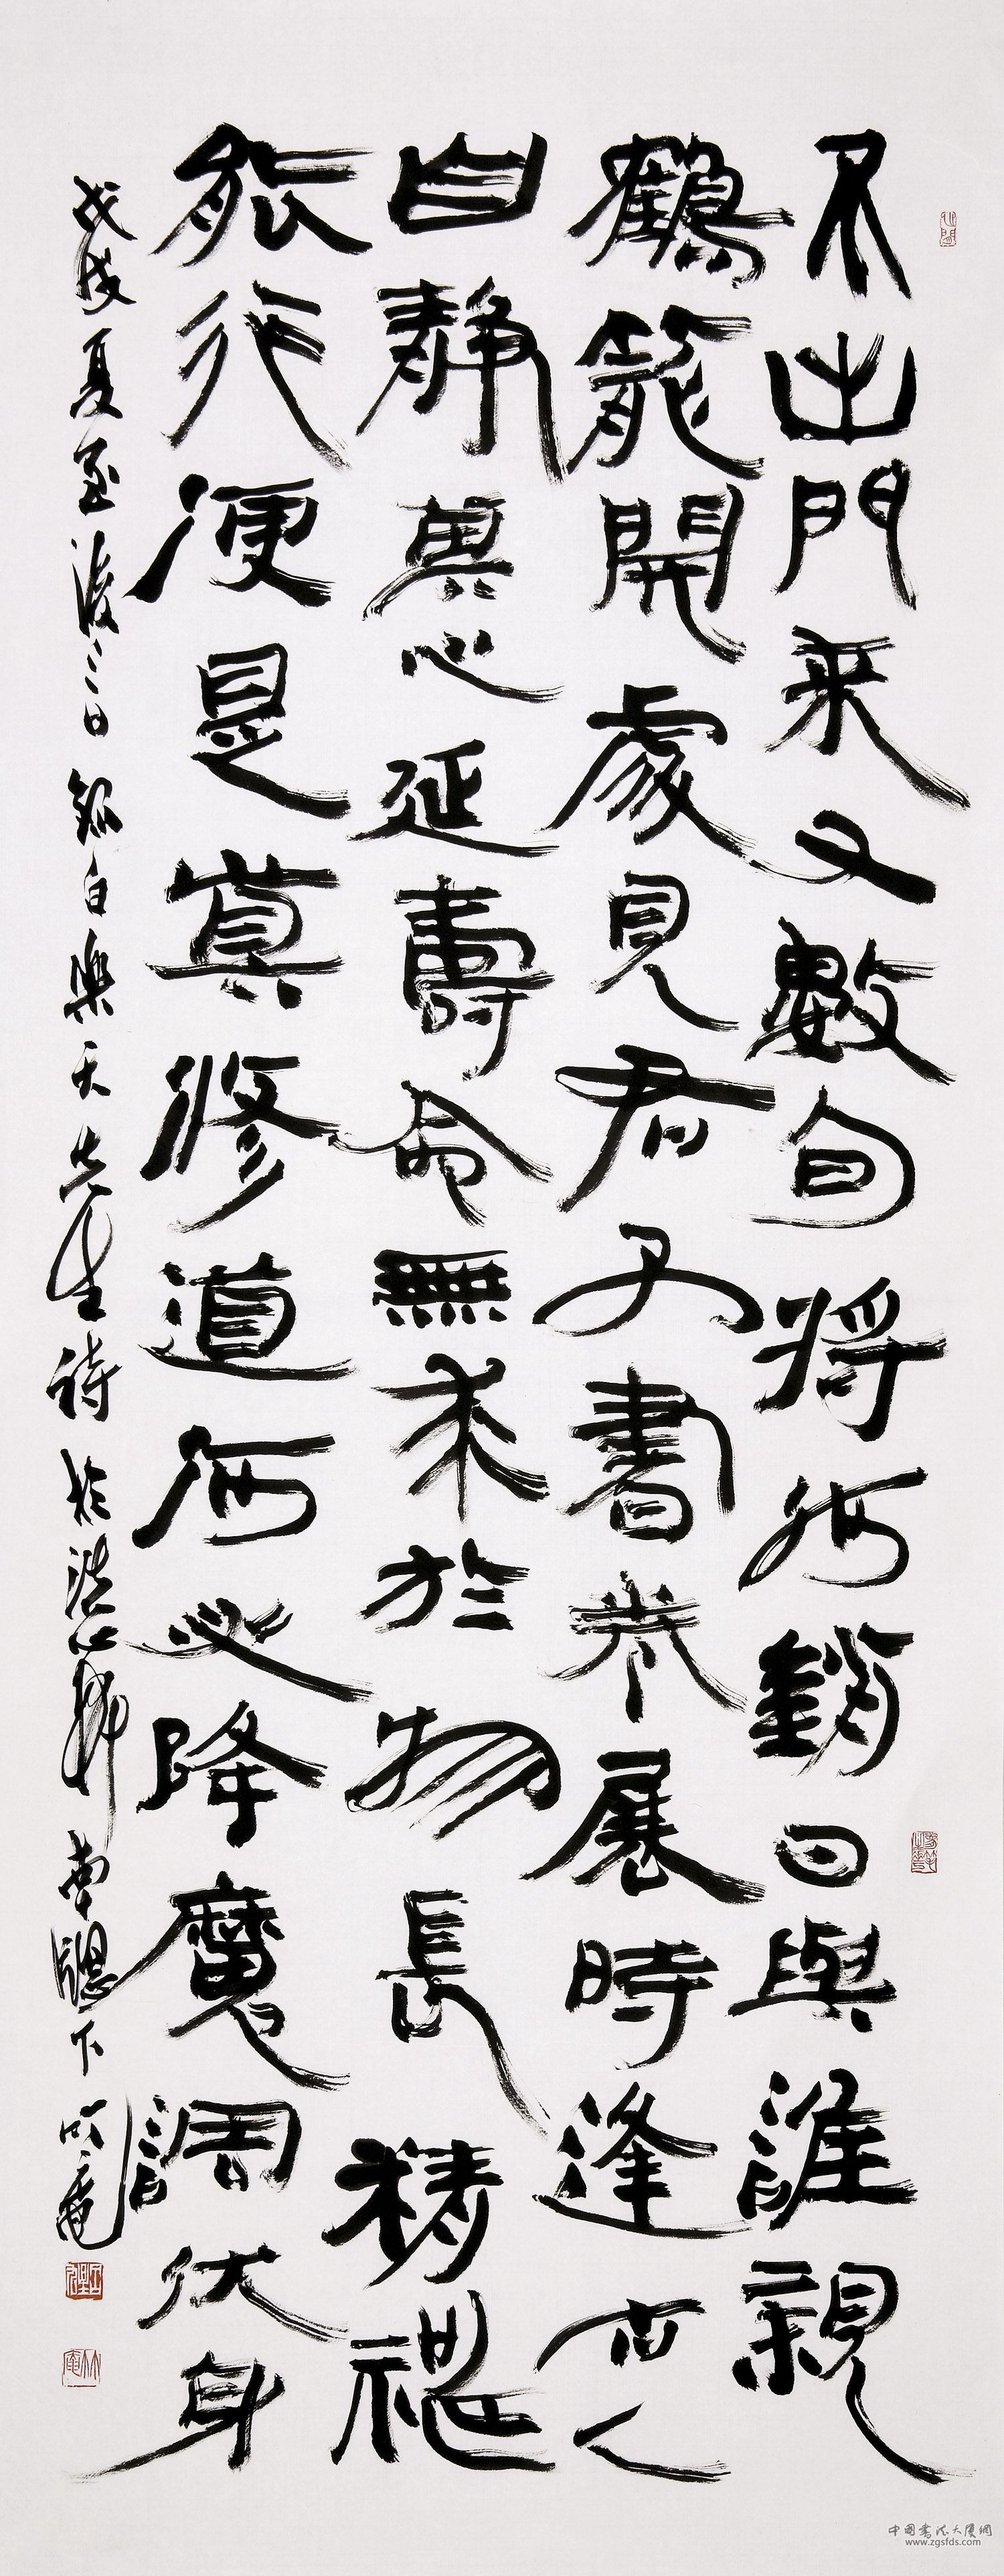 不出門来又數旬將何銷日與誰親
鶴籠開處見君子書卷展時逢古人
自静其心延壽命無求於物長精神
能行便是真修道何必降魔調伏身
戊戌夏至後三日録白樂天先生詩於浩然軒南牕下
中國書法大厦網
www.zgsfds.com